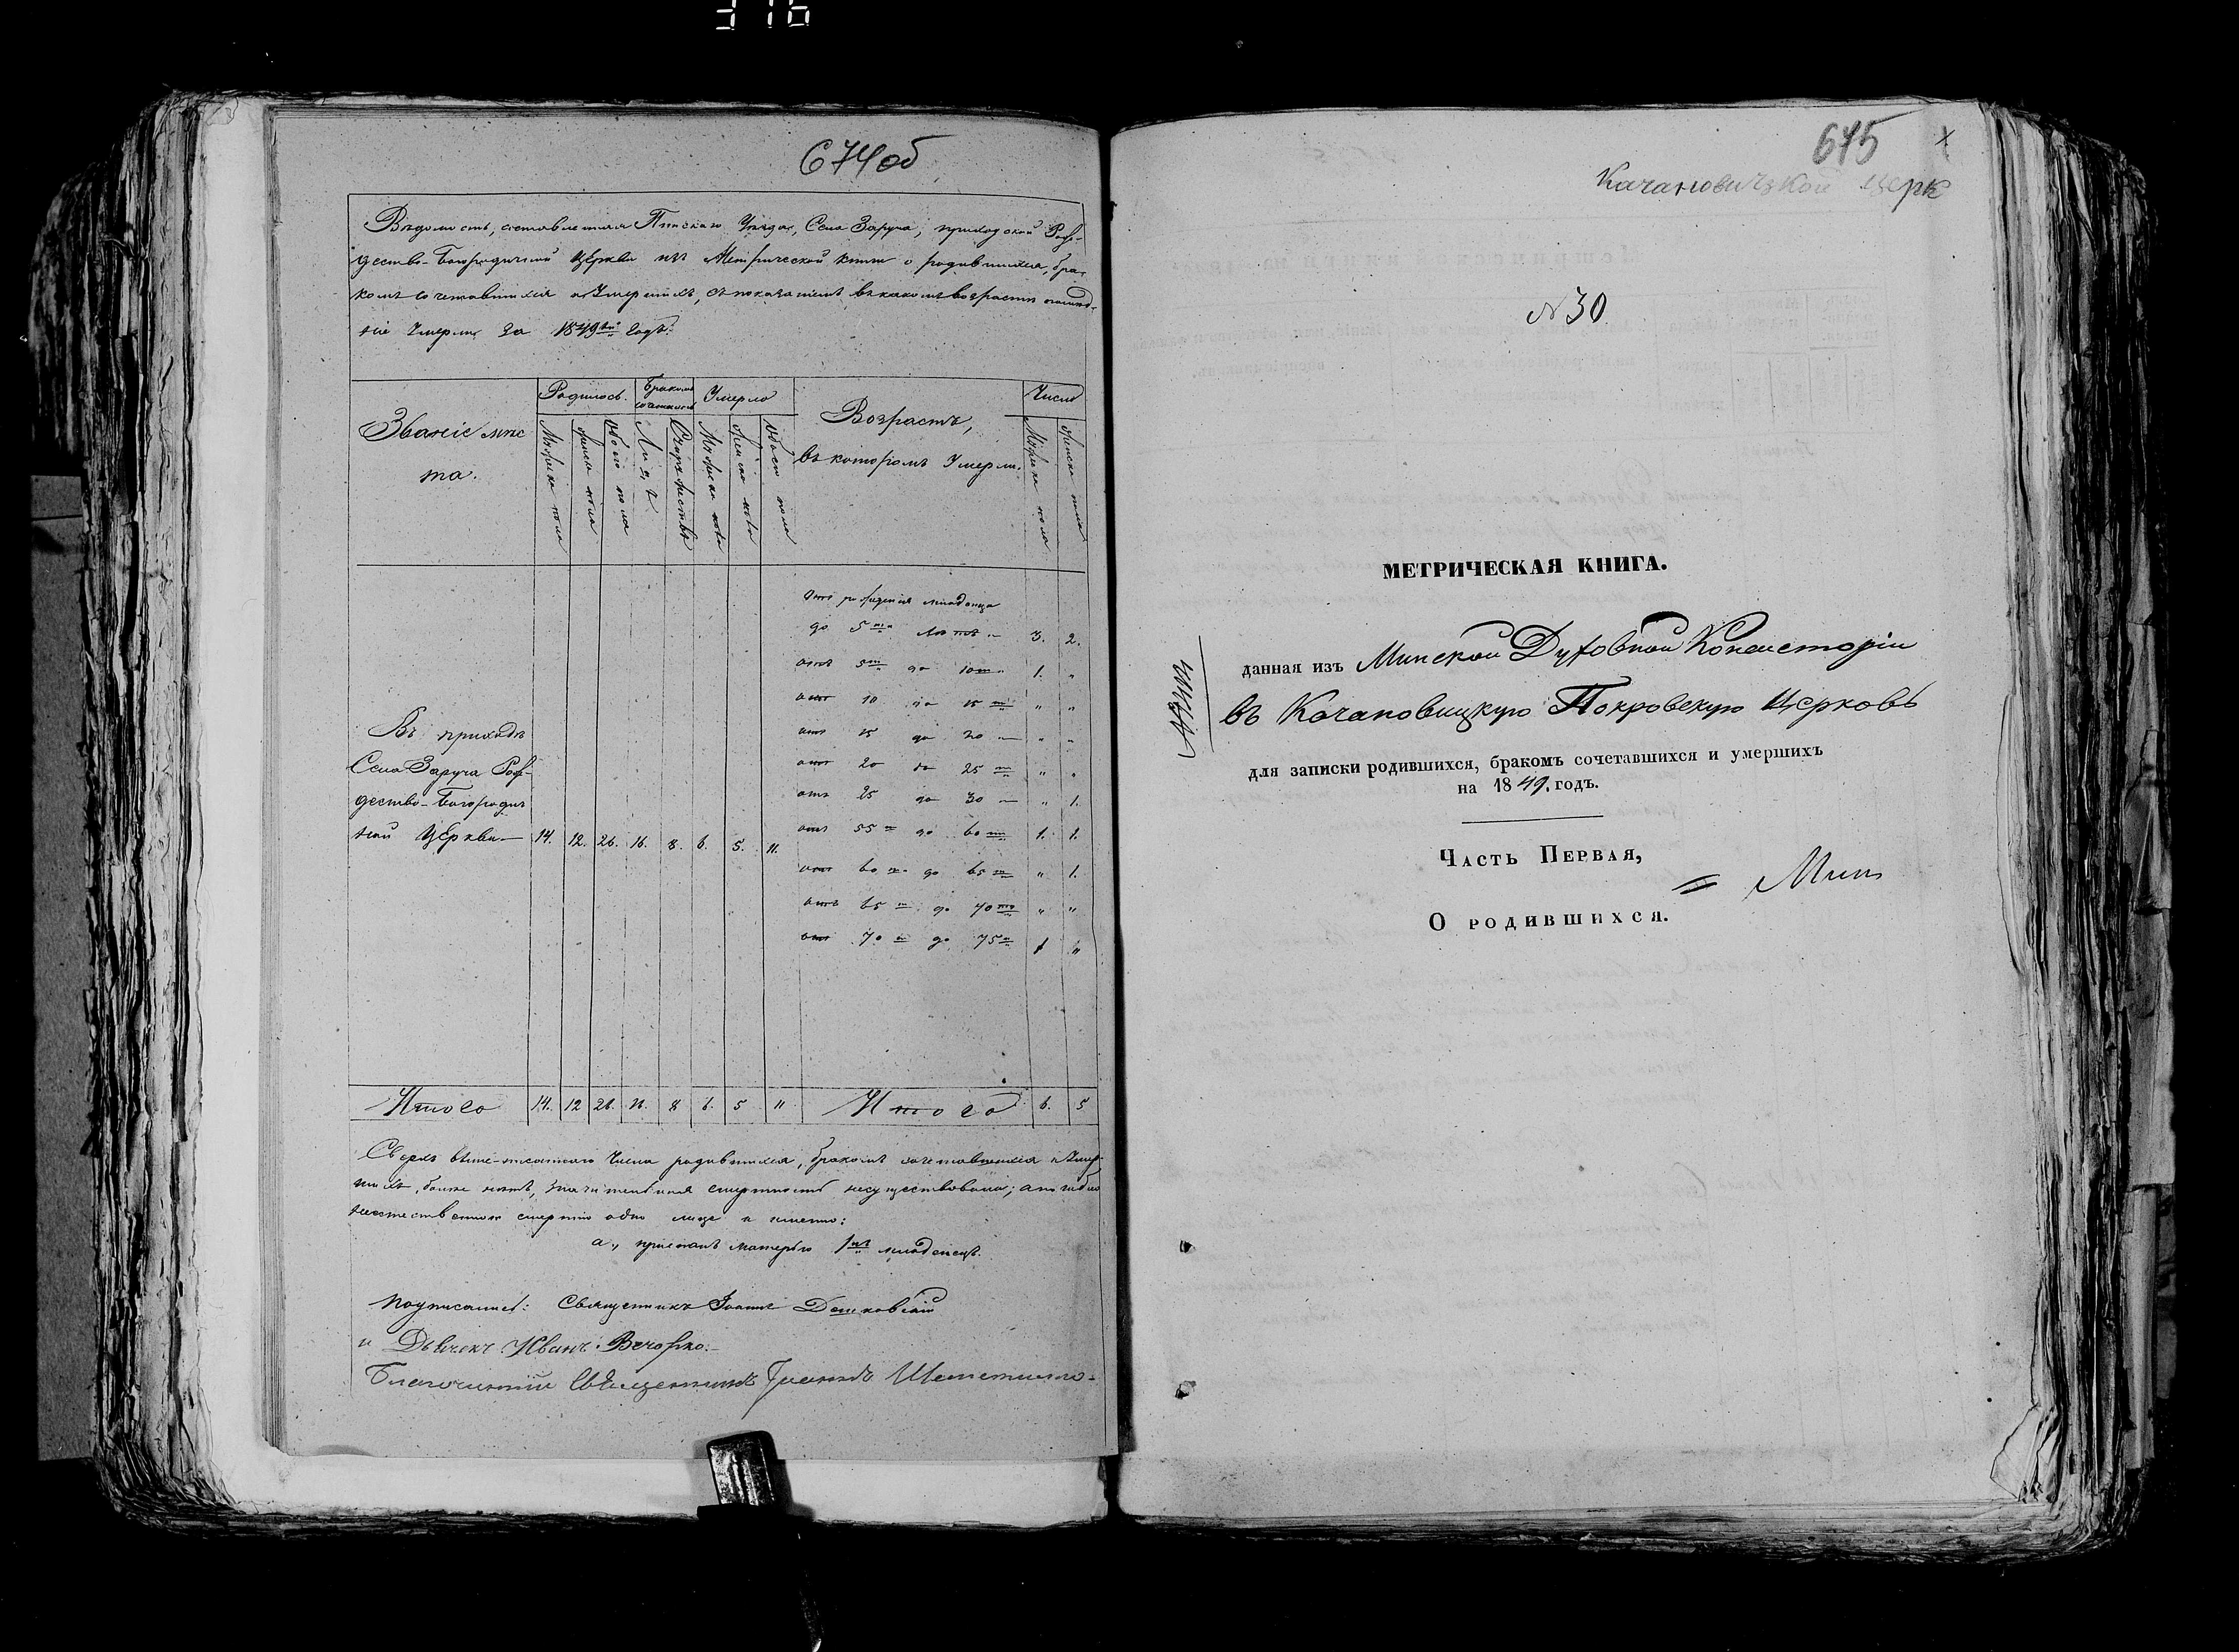 316
674об
Вѣдомость, составленная Пинскаго Уѣзда, Села Заруча, приходской Рож-
дество-Богородичной Церкви изъ Метрической книги о родившихся, бра-
комъ сочетавшихся и Умершихъ, съ показаніемъ въ какомъ возрастѣ
Умерли за 1849й годъ.
Званіе мѣс
та.
Родилось. Бракомъ сочеталось Умерло Возрастъ, въ которомъ Умерли. Число
Мужеска пола женска пола обоего пола Лицъ Супружествъ Мужеска пола женска пола обоего пола Мужеска пола женска пола
отъ рожденія младенца
до 5ти лѣтъ 3. 2.
отъ 5ти до 10ти 1. "
отъ 10 до 15ти " "
отъ 15 до 20 " "
отъ 20 до 25ти " "
отъ 25 до 30 " 1.
отъ 55 до 60ти 1. 1.
отъ 60 до 65ти " 1.
отъ 65 до 70ти " "
отъ 70 до 75ти 1 "
Въ приходѣ
Села Заруча Рож-
дество-Богородич
ной Церкви 14. 12. 26. 16. 8. 6. 5. 11.
Итого 14. 12 26. 16. 8 6. 5 11 Итого 6. 5
Сверхъ выше-писаннаго числа родившихся, бракомъ сочетавшихся и Умер-
шихъ, болѣе нѣтъ, значительная смертность несуществовала;
смертію одно лице а именно:
а., приспанъ матерью 1нъ младенецъ.
Подписались: Священникъ Іоаннъ Дашковскій
и Дьячекъ Иванъ Вечорко.
Благочинный Священникъ Іоаннъ
675 х
Качановичзкой церк
№30
МЕТРИЧЕСКАЯ КНИГА.
данная изъ Минской Духовной Консисторіи
въ Качановицкую Покровскую Церковь
для записки родившихся, бракомъ сочетавшихся и умершихъ
на 1849. годъ.
Часть Первая,
О родившихся.